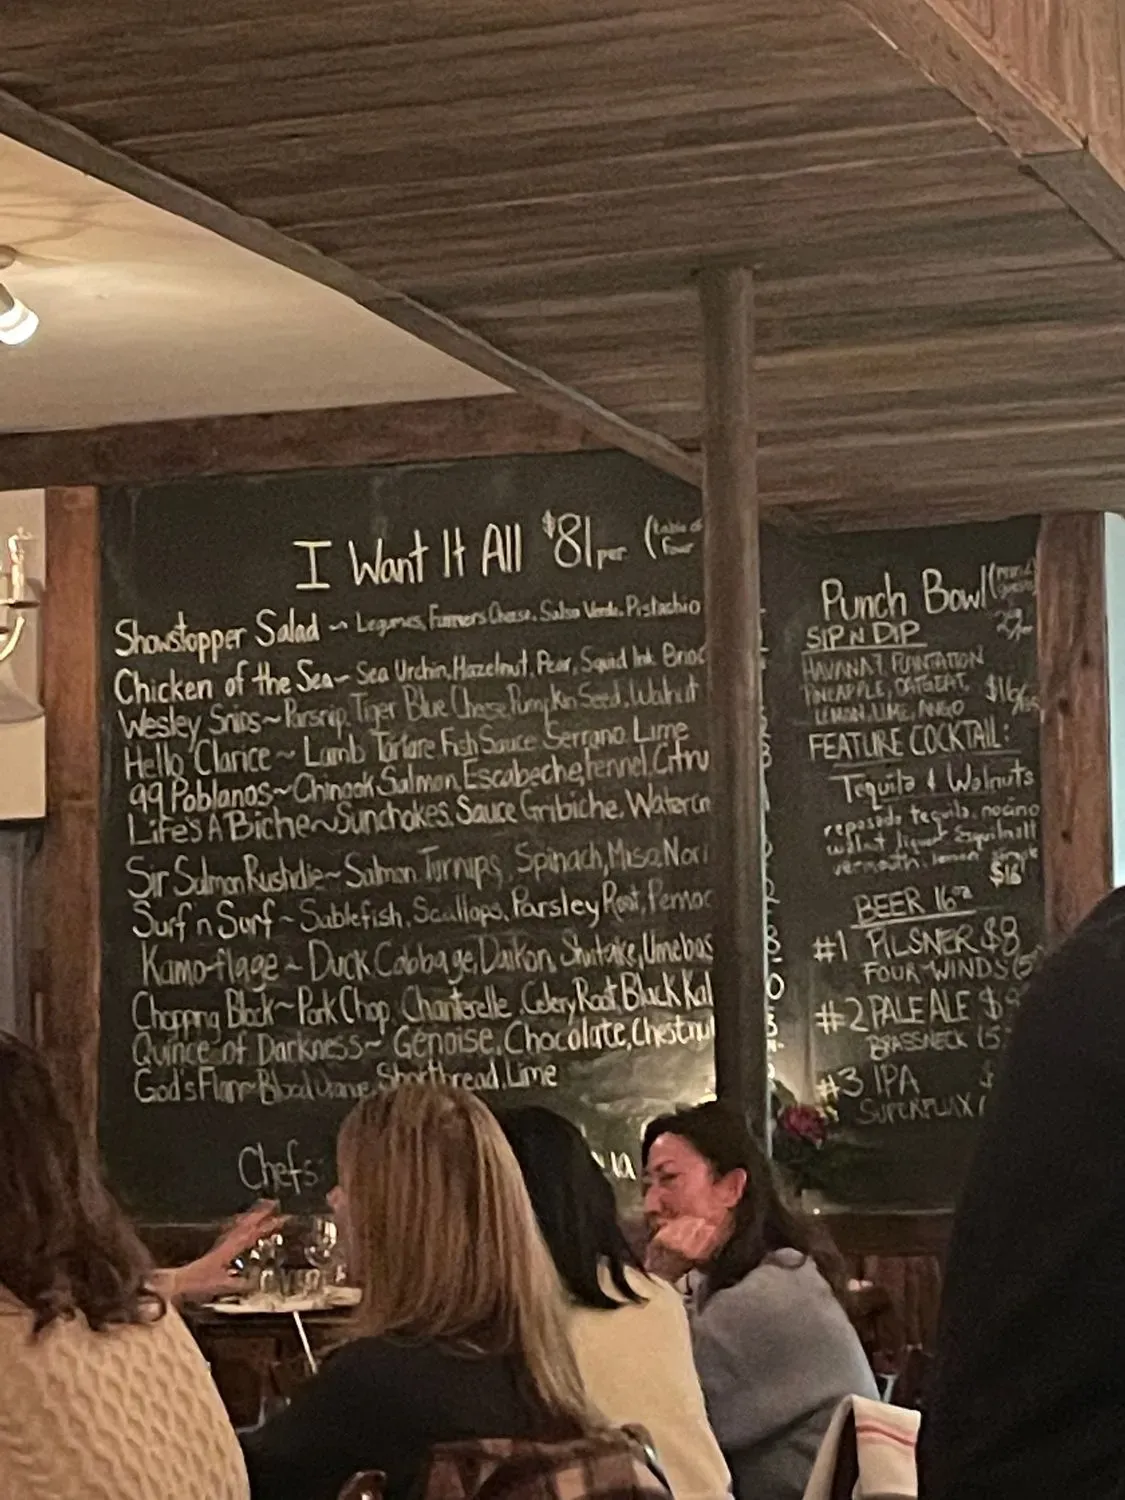 I Want It All $81 per (table of four
Showstopper Salad ~ Legumes, Farmers Cheese, Salsa Verde, Pistachio
Chicken of the Sea ~ Sea Urchin, Hazelnut, Pear, Squid Ink
Wesley Snips ~ Parsnip, Tiger Blue Cheese, Pumpkin Seed, Walnut
Hello Clarice ~ Lamb Tartare Fish Sauce Serrano Lime
99 Poblanos ~ Chinook Salmon, Escabeche, Fennel,
Life's A Biche ~ Sunchokes, Sauce Gribiche,
Sir Salmon Rushdie ~ Salmon Turnips, Spinach, Miso, Nori
Surf n Surf ~ Sablefish, Scallops, Parsley Root,
Kamo-flage ~ Duck Cabbage, Daikon, Shiitake,
Chopping Block ~ Pork Chop, Chanterelle, Celery Root, Black
Quince of Darkness ~ Génoise, Chocolate, Chestnut
God's Flan ~ Blood Orange, Shortbread, Lime
Chefs:
Punch Bowl
SIP N DIP
PLANTATION
PINEAPPLE,
LEMON, LIME, $16
FEATURE COCKTAIL:
Tequila & Walnuts
reposado tequila, nocino
vermouth, lemon
$16
BEER 16oz
#1 PILSNER $8
FOUR WINDS (5
#2 PALE ALE $
BRASSNECK (5
#3 IPA
SUPERFLUX (